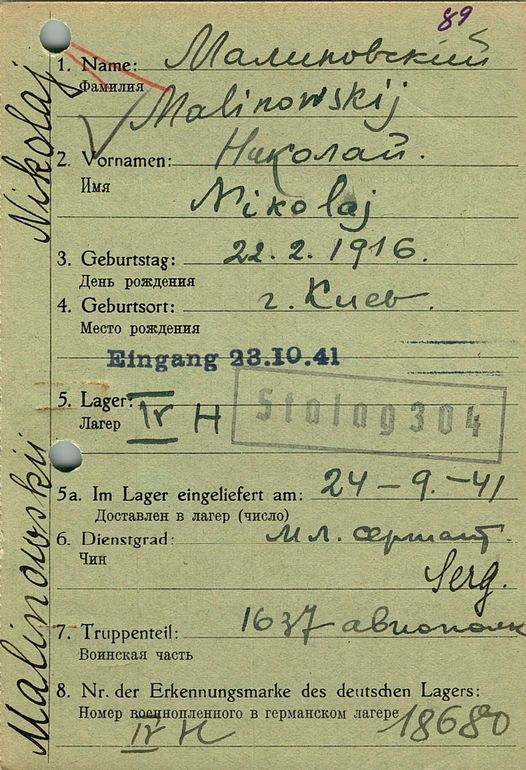 89
1. Name: Малиновский
Фамилия
Malinowskij
2. Vornamen: Николай.
Имя
Nikolaj
3. Geburtstag: 22. 2. 1916.
День рождения
4. Geburtsort: г. Киев.
Место рождения
Eingang 23.10.41
5. Lager: IV H
Лагер
Stalag 304
5a. Im Lager eingeliefert am: 24 - 9. - 41
Доставлен в лагер (число)
6. Dienstgrad: мл. сержант.
Чин
Serg.
7. Truppenteil: 1637 авиополк
Воинская часть
8. Nr. der Erkennungsmarke des deutschen Lagers:
Номер военнопленного в германском лагере 18680
IV H
Malinowskij Nikolaj